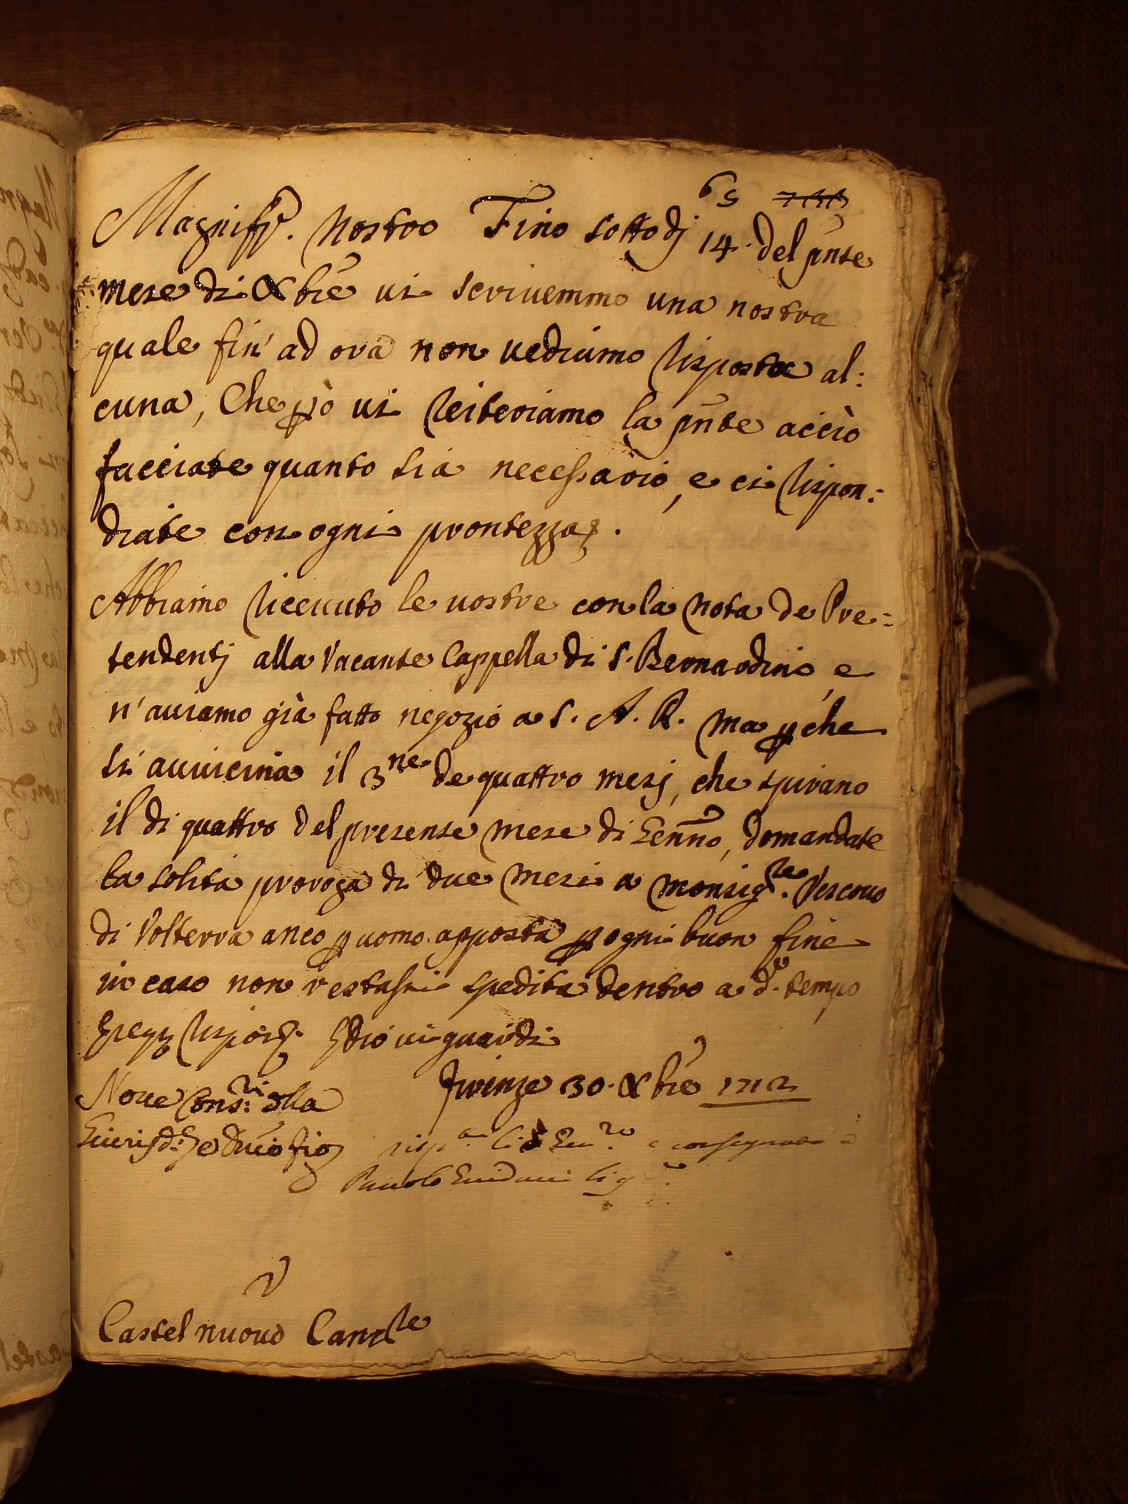 65
Magnif.co Nostro Fino sotto dj 14. del pnte
mese di Xbre vi scrivemmo una nostra
quale fin' ad ora non vediamo risposta al:
cuna, Che però vi reiteriamo la pnte acciò
facciate quanto sia necessario, e ci rispon:
diate con ogni prontezza.
Abbiamo ricevuto le vostre con la nota de Pre:
tendentj alla Vacante Cappella di S. Bernardino, e
n' aviamo già fatto negozio a S. A. R. ma perche
si avvicina il 3.ne de quattro mesj, che spirano
il di quattro del presense mese di Genno, domandate
la solita proroga di due mesi a Monsig.re Vescovo
di Volterra anco p uomo apposta p ogni buon fine
in caso non restassi spedita dentro a d.o tempo
e Dio vi guardi
Firenze 30. Xbre 1712
Nove Cons.ri dlla
Giurisd.e e Dnio fio
Castel nuovo Canc.re